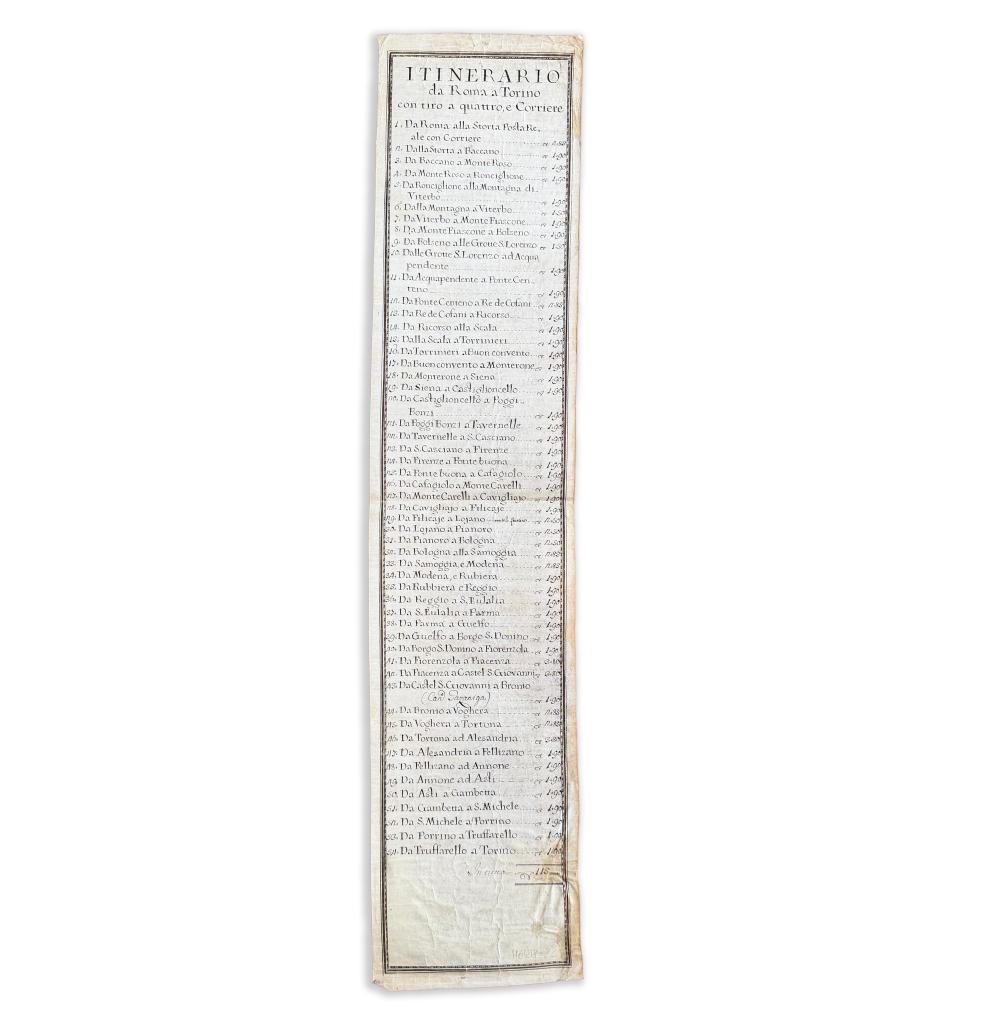 ITINERARIO
da Roma a Torino
con tiro a quattro, e Corriere
1. Da Roma alla Storta Posta Re,
ale con Corriere
2. Dalla Storta a Baccano 1.90
3. Da Baccano a Monte Roso 1.90
4. Da Monte Roso a Ronciglione 1.90
5. Da Ronciglione alla Montagna di
Viterbo 1.90
6. Dalla Montagna a Viterbo 1.50
7. Da Viterbo a Monte Fiascone 1.90
8. Da Monte Fiascone a Bolseno 1.90
9. Da Bolseno alle Grotte S. Lorenzo 1.50
10. Dalle Grotte S. Lorenzo ad Acqua
pendente 1.90
11. Da Acquapendente a Ponte Cen,
teno 1.90
12. Da Ponte Centeno a Re de Cofani
13. Da Re de Cofani a Ricorso 1.90
14. Da Ricorso alla Scala 1.90
15. Dalla Scala a Torrinieri 1.90
16. Da Torrinieri a Buon convento 1.90
17. Da Buon convento a Monterone 1.90
18. Da Monterone a Siena 1.90
19. Da Siena a Castiglioncello 1.90
20. Da Castiglioncello a Poggi
Bonzi 1.90
21. Da Poggi Bonzi a Tavernelle 1.90
22. Da Tavernelle a S. Casciano 1.90
23. Da S. Casciano a Firenze 1.90
24. Da Firenze a Ponte buona 1.90
25. Da Ponte buona a Cafagiolo 1.90
26. Da Cafagiolo a Monte Carelli 1.90
27. Da Monte Carelli a Cavigliajo 1.90
28. Da Cavigliajo a Filicaje 1.90
29. Da Filicaje a Lojano
30. Da Lojano a Pianoro
31. Da Pianoro a Bologna
32. Da Bologna alla Samoggia
33. Da Samoggia, e Modena
34. Da Modena, e Rubiera 1.90
35. Da Rubbiera e Reggio 1.90
36. Da Reggio a S. Eulalia 1.90
37. Da S. Eulalia a Parma 1.90
38. Da Parma a Guelfo 1.90
39. Da Guelfo a Borgo S. Donino 1.90
40. Da Borgo S. Donino a Fiorenzola 1.90
41. Da Fiorenzola a Piacenza 3.80
42. Da Piacenza a Castel S. Giovanni 3.80
43. Da Castel S. Giovanni a Bronio
1.90
44. Da Bronio a Voghera
45. Da Voghera a Tortona
46. Da Tortona ad Alesandria 3.80
47. Da Alesandria a Fellizano 1.90
48. Da Fellizano ad Annone 1.90
49. Da Annone ad Asti 1.90
50. Da Asti a Gambetta 1.90
51. Da Gambetta a S. Michele 1.90
52. Da S. Michele a Porrino 1.90
53. Da Porrino a Truffarello 1.90
54. Da Truffarello a Torino 1.90